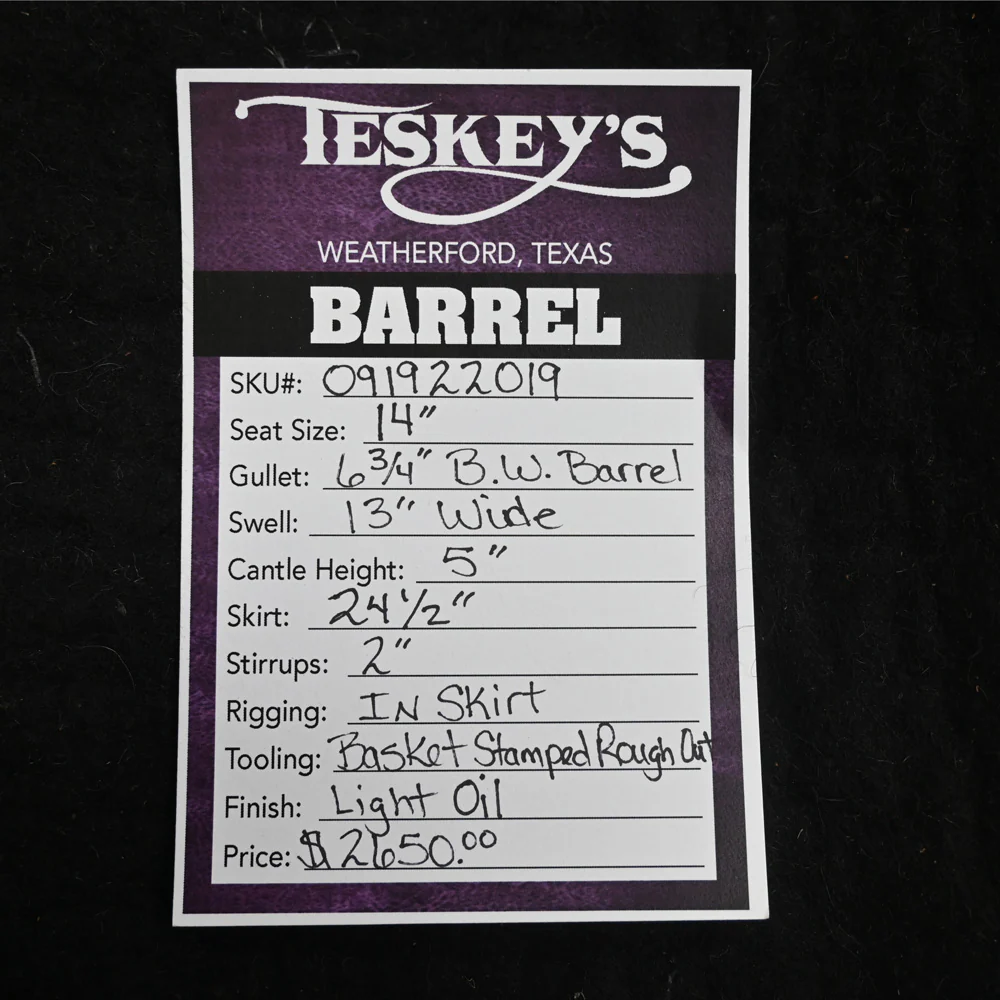 TESKEY'S
WEATHERFORD, TEXAS
BARREL
SKU#: 091922019
Seat Size: 14"
Gullet: 6 3/4" B.W. Barrel
Swell: 13" Wide
Cantle Height: 5"
Skirt: 24 1/2"
Stirrups: 2"
Rigging: IN Skirt
Tooling: Basket Stamped Rough Out
Finish: Light Oil
Price: $2650.00